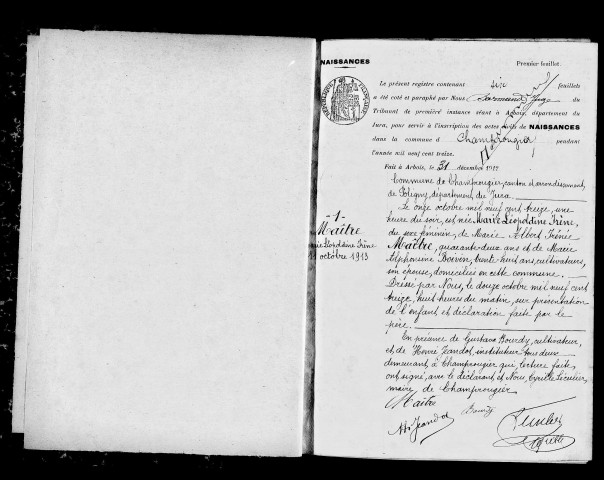 NAISSANCES
Premier feuillet.
Le présent registre contenant six feuillets
a été coté et paraphé par Nous Juge du
Tribunal de première instance séant à Arbois, département du
Jura, pour servir à l'inscription des actes civils de NAISSANCES
dans la commune d Champrougier pendant
l'année mil neuf cent treize.
Fait à Arbois, le 31 décembre 1912
Commune de Champrougier, canton et arrondissement
de Poligny, département du Jura.
-1-
Maître
Marie Léopoldine Irène
11 octobre 1913
Le onze octobre mil neuf cent treize, une
heure du soir, est née Marie Léopoldine Irène,
du sexe féminin, de Marie Albert Irénée
Maître, quarante-deux ans et de Marie
Alphonsine Boivin, trente huit ans, cultivateurs,
son épouse, domiciliés en cette commune.
Dressé par Nous, le douze octobre mil neuf cent
treize, huit heures du matin, sur présentation
de l'enfant et déclaration faite par le
père.
En présence de Gustave Bourdy, cultivateur,
et de Henri Jeandot, instituteur tous deux
demeurant à Champrougier qui, lecture faite,
ont signé, avec le déclarant, et Nous, Cyrille
maire de Champrougier
Maître
Bourdy
Jeandot